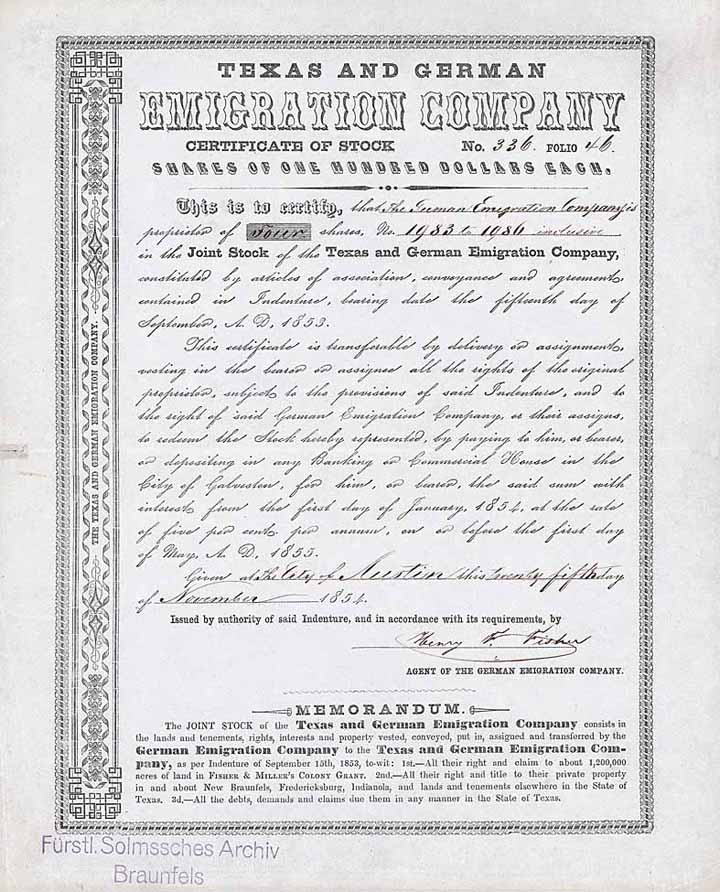 TEXAS AND GERMAN
EMIGRATION COMPANY
CERTIFICATE OF STOCK No. 336. FOLIO 46.
SHARES OF ONE HUNDRED DOLLARS EACH.
This is to certify, that the German Emigration Company is
proprietor of Four shares, No. 1983 to 1986 inclusive
in the Joint Stock of the Texas and German Emigration Company,
constituted by articles of association, conveyance and agreement,
contained in Indenture, bearing date the fifteenth day of
September, A. D. 1853.
This certificate is transferable by delivery or assignment,
vesting in the bearer or assignee all the rights of the original
proprietor, subject to the provisions of said Indenture, and to
the right of said German Emigration Company, or their assigns,
to redeem the Stock hereby represented, by paying to him, or bearer,
or depositing in any Banking or Commercial House in the
City of Galveston, for him, or bearer, the said sum with
interest from the first day of January, 1854, at the rate
of five per cent. per annum, on or before the first day
of May, A. D. 1855.
Given at the City of Austin this twenty fifth day
of November 1854.
Issued by authority of said Indenture, and in accordance with its requirements, by
Henry F. Fisher
AGENT OF THE GERMAN EMIGRATION COMPANY.
MEMORANDUM.
The JOINT STOCK of the Texas and German Emigration Company consists in
the lands and tenements, rights, interests and property vested, conveyed, put in, assigned and transferred by the
German Emigration Company to the Texas and German Emigration Com-
pany, as per Indenture of September 15th, 1853, to-wit: 1st.—All their right and claim to about 1,200,000
acres of land in FISHER & MILLER'S COLONY GRANT. 2nd.—All their right and title to their private property
in and about New Braunfels, Fredericksburg, Indianola, and lands and tenements elsewhere in the State of
Texas. 3d.—All the debts, demands and claims due them in any manner in the State of Texas.
THE TEXAS AND GERMAN EMIGRATION COMPANY.
Fürstl. Solmssches Archiv
Braunfels